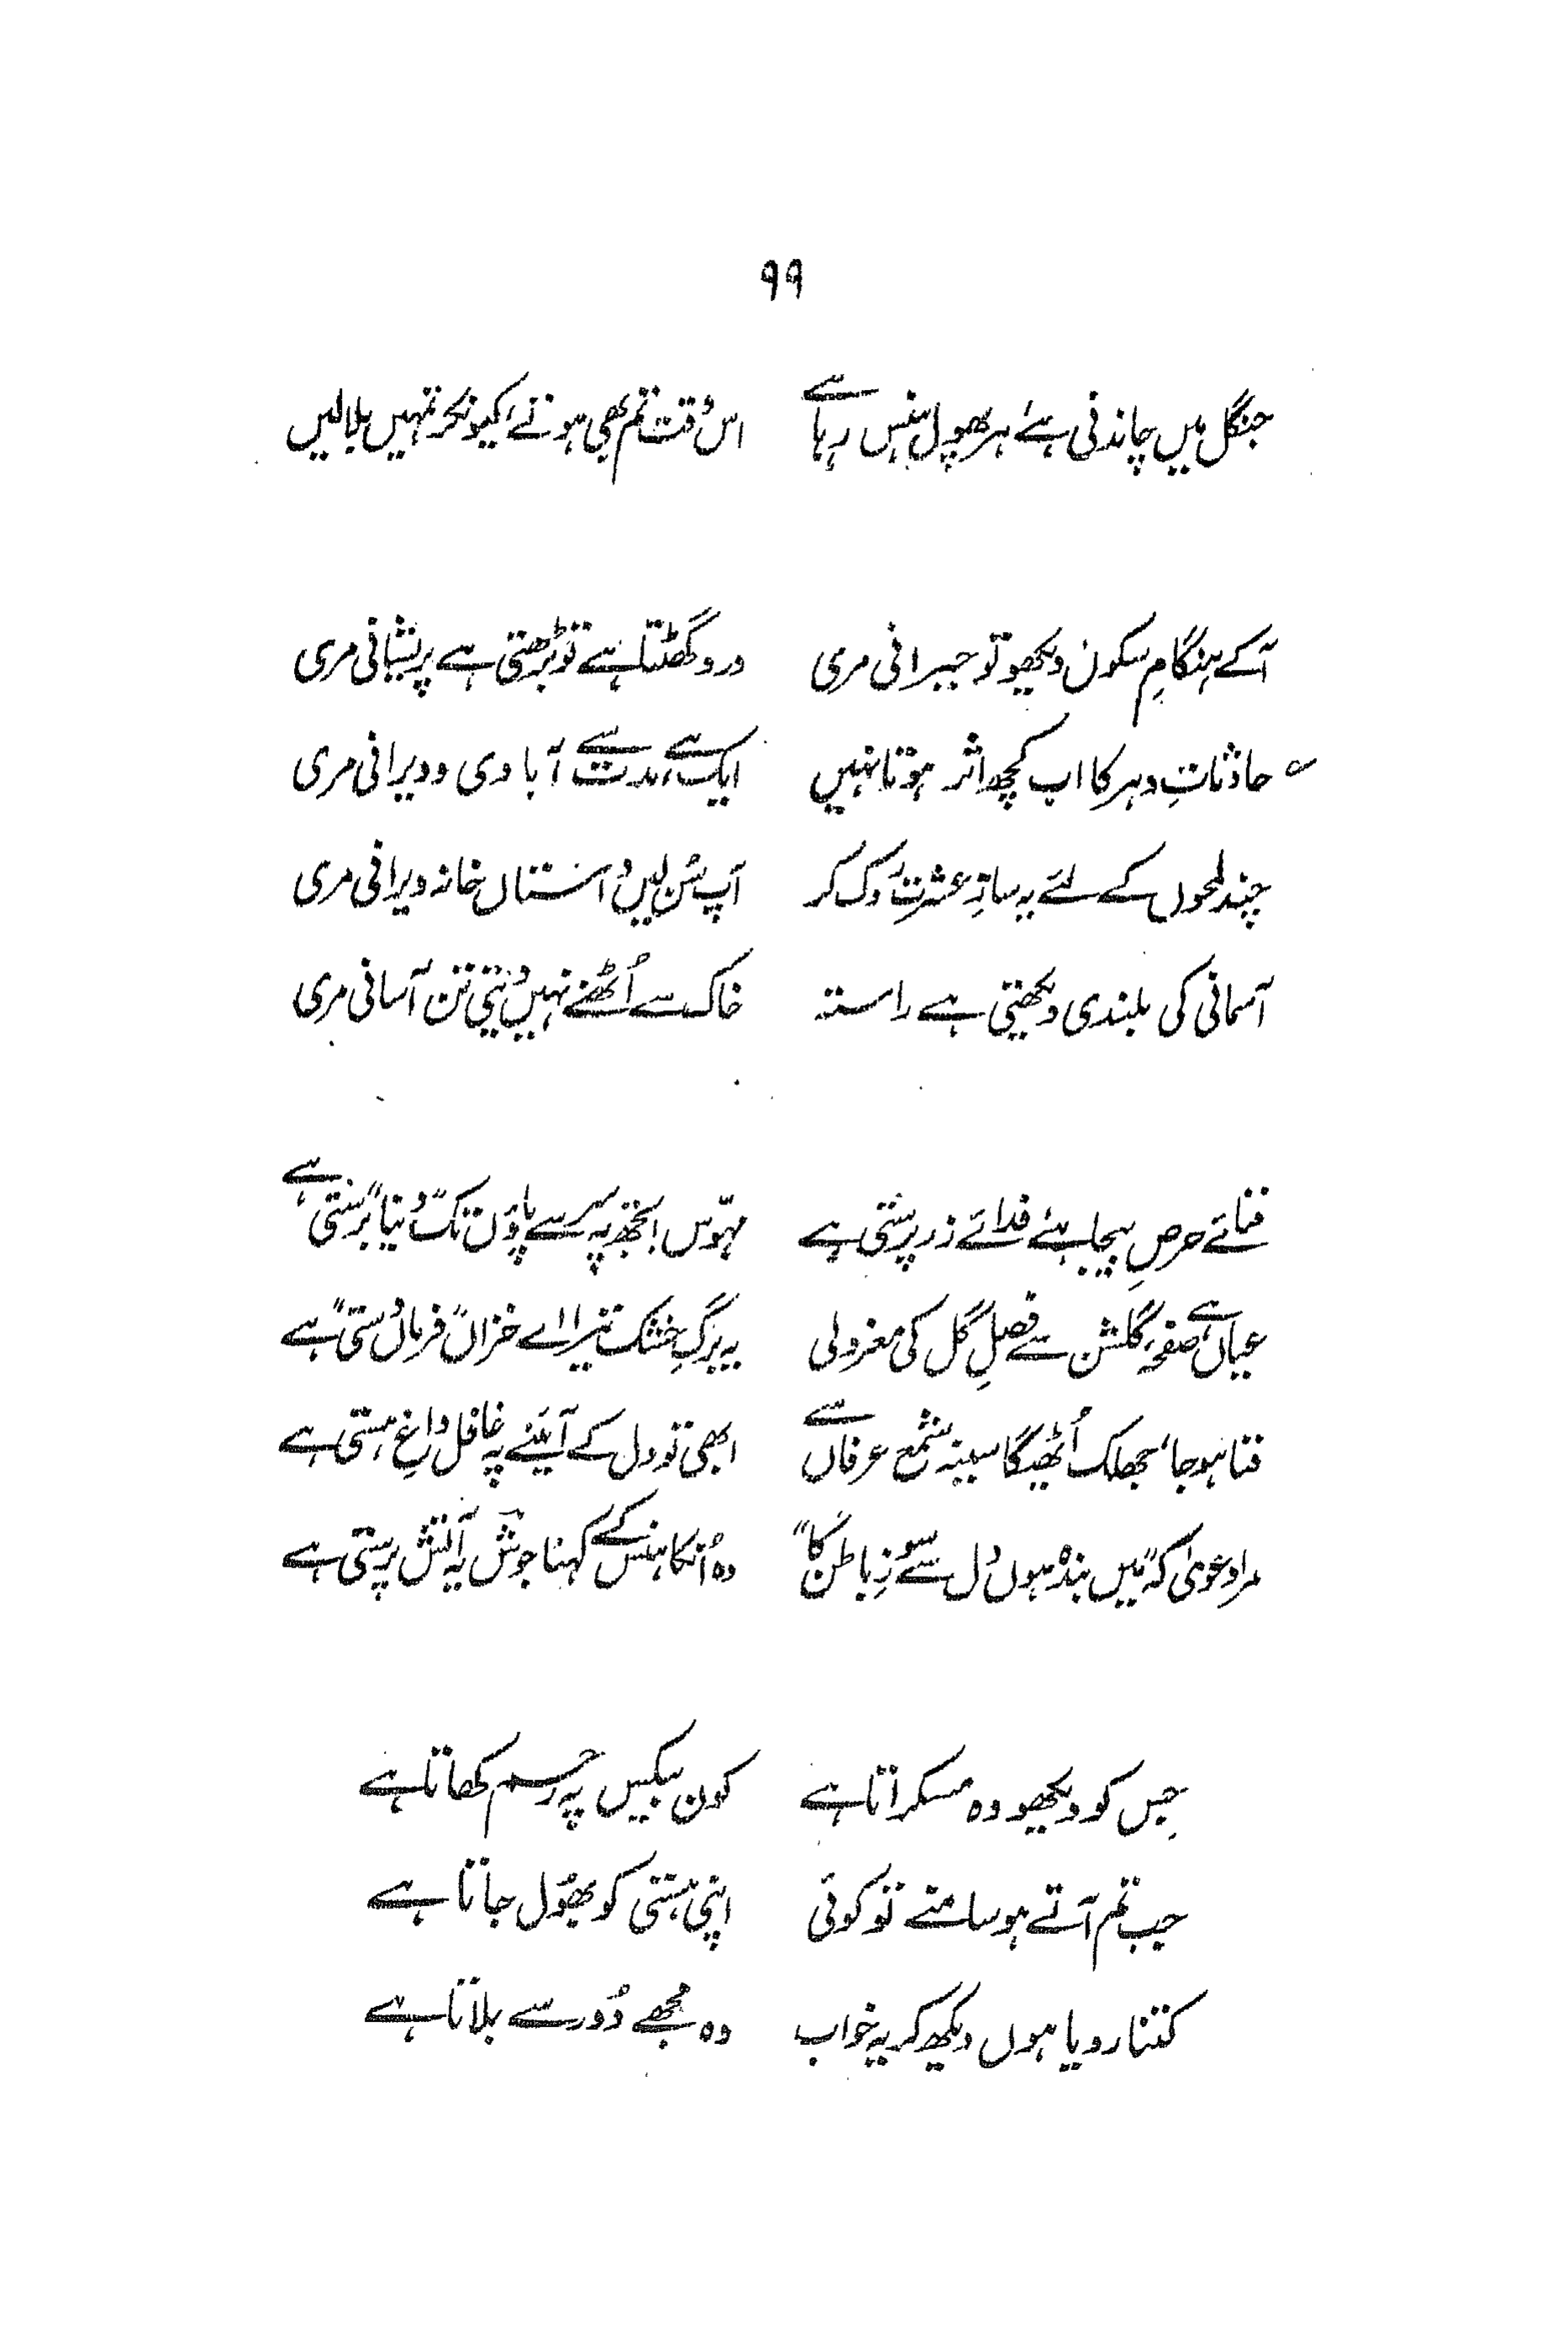 ۹۹
جنگل میں چاندنی ہے، ہر پھول ہنس رہا ہے اس وقت تم بھی ہوتے، کیونکر تمہیں بلا لیں
آکے ہنگامِ سکون دیکھو تو حیرانی مری درد گھٹتا ہے تو بڑھتی ہے پریشانی مری
حادثاتِ دہر کا اب کچھ اثر ہوتا نہیں ایک ہے، مدت سے آبادی و ویرانی مری
چند لمحوں کے لئے یہ سازِ عشرت روک کر آپ سُن لیں داستانِ خانہ ویرانی مری
آسمانی کی بلندی دیکھتی ہے راستہ خاک سے اُٹھنے نہیں دیتی تن آسانی مری
فنائے حرصِ بیجا ہے، فدائے زر پرستی ہے مہوّس! تجھ پہ سر سے پاؤں تک "دُنیا" برستی ہے
عیاں ہے صفحۂ گلشن سے فصلِ گل کی معزولی یہ برگِ خشک تیرا اے خزاں "فرمانِ دستی" ہے
فنا ہو جا، جھلک اُٹھیگا سینہ شمع عرفاں سے ابھی تو دل کے آئینے پہ غافل داغِ ہستی ہے
مرا دعویٰ کہ "میں بندہ ہوں دل سے سوزِ باطن کا" وہ اُنکا ہنس کے کہنا جوشؔ یہ آتش پرستی ہے
جِس کو دیکھو وہ مسکراتا ہے کون بیکس پہ رحم کھاتا ہے
جب تم آتے ہو سامنے تو کوئی اپنی ہستی کو بھُول جاتا ہے
کتنا رویا ہوں دیکھ کر یہ خواب وہ مجھے دُور سے بلاتا ہے